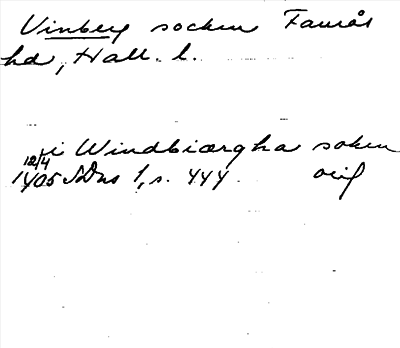 Vinberg socken Faurås
hd, Hall. l.
i Windbiærgha soken
12/4
1405 SDns 1, s. 444 orig